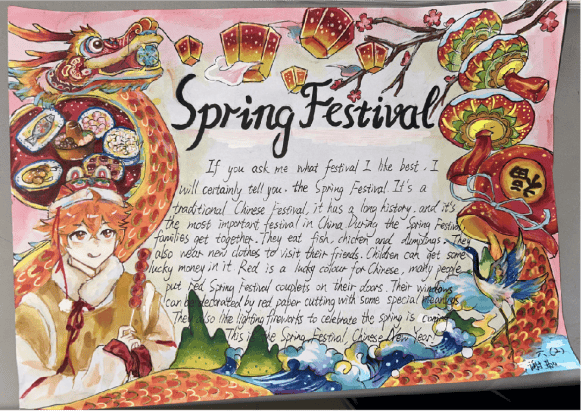 Spring Festival
If you ask me what festival I like best. I
will certainly tell you. the Spring Festival. It's a
traditional Chinese Festival, it has a long history. and it's
the most important festival in China. During the Spring Festival,
families get together. They eat fish, chicken and dumplings. They
also wear new clothes to visit their friends. Children can get some
lucky money in it. Red is a lucky colour for Chinese, many people
put Red Spring Festival couplets on their doors. Their windows
can be decorated by red paper cutting with some special meanings
They also like lighting fireworks to celebrate the spring is coming.
This is the Spring Festival, Chinese New Year.
福
六(2)